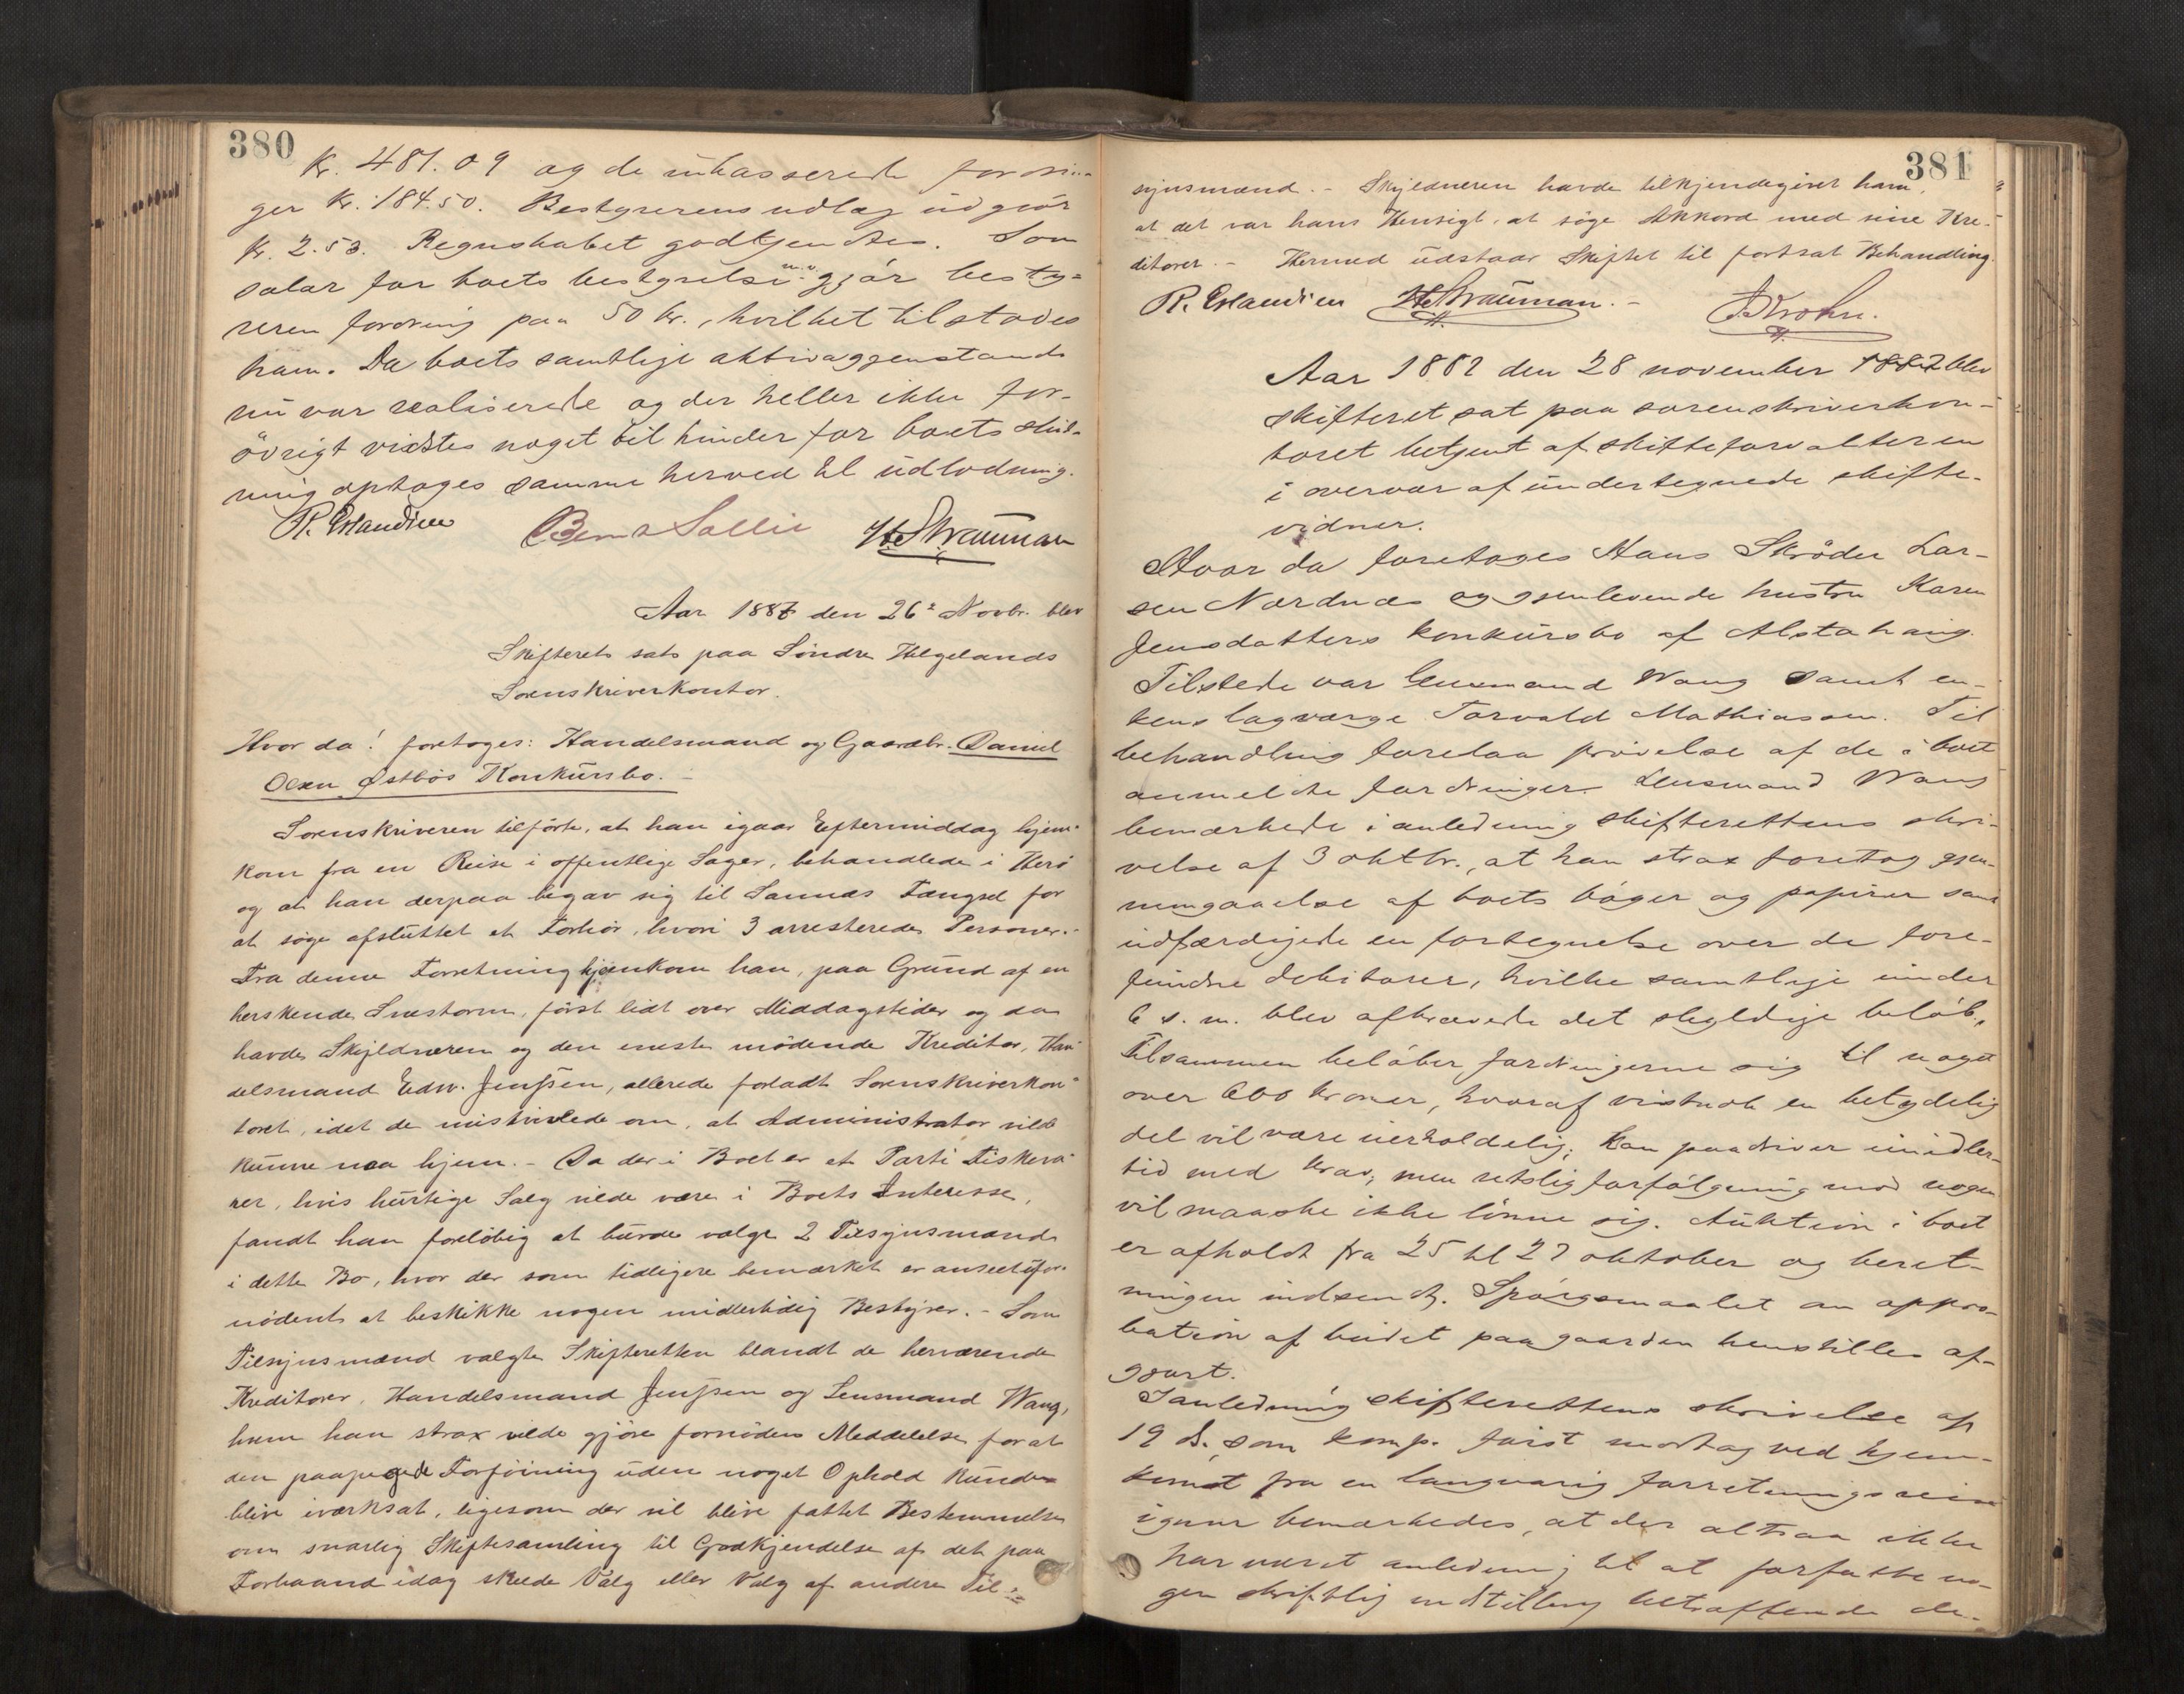 380
Kr. 481.09 og de inkasserede fordrin-
ger Kr. 184.50. Bestyrerens udlæg udgjör
Kr. 2.53. Regnskabet godkjendtes. Som
salær for boets bestyrelse m.v. gjör besty-
reren fordring paa 50 kr., hvilket tilstodes
ham. Da boets samtlige aktivagjenstande
nu var realiserede og der heller ikke for-
övrigt vidstes noget til hinder for boets slut-
ning optages samme herved til udlodning.
R. Erlandsen Bernt Sollie H. Strauman
Aar 1887 den 26de Novbr. blev
Skifterets sats paa Söndre Helgelands
Sorenskriverkontor.
Hvor da! foretoges: Handelsmand og Gaardbr. Daniel
Olsen Østbös Konkursbo. -
Sorenskriveren tilförte, at han igaar Eftermiddag hjem-
kom fra en Reise i offentlige Sager, behandlede i Herö
og at han derpaa begav sig til Sannæs Fængsel for
at söge afsluttet et Forhör, hvori 3 arresterede Personer. -
Fra denne Forretning hjemkom han, paa Grund af en
herskende Snestorm, först lidt over Middagstider og da
havde Skyldneren og den eneste mödende Kreditor, Han-
delsmand Edv. Jenssen, allerede forladt Sorenskriverkon-
toret, idet de mistvivlede om, at Administrator vilde
kunne naa hjem. - Da der i Boet er et Parti Fiskeva-
rer, hvis hurtige Salg vilde være i Boets Interesse,
fandt han forelöbig at burde vælge 2 Tilsynsmænd
i dette Bo, hvor der som tidligere bemærket er anseet ufor-
nödent at beskikke nogen midlertidig Bestyrer. - Som
Tilsynsmænd valgte Skifteretten blandt de herværende
Kreditorer, Handelsmand Jenssen og Lensmand Wang,
hvem han strax vilde gjöre fornöden Meddelelse for at
den paapegede Forföining uden noget Ophold kunde
blive iværksat, ligesom der vil blive fattet Bestemmelse
om snarlig Skiftesamling til Godkjendelse af det paa
Forhaand idag skede Valg eller Valg af andre Til-
381
synsmænd. - Skyldneren havde tilkjendegivet ham,
at det var hans Hensigt, at söge Akkord med sine Kre-
ditorer. - Hermed udstaar Skiftet til fortsat Behandling.
R. Erlandsen H. Strauman. - J. Krohn.
Aar 1882 den 28 november 1887 blev
skifteret sat paa sorenskriverkon-
toret betjent af skifteforvalteren
i overvær af undertegnede skifte-
vidner.
Hvor da foretoges Hans Skröder Lar-
sen Nordnæs og gjenlevende hustru Karen
Jensdatters konkursbo af Alstahaug.
Tilstede var lensmand Wang samt en-
kens lagværge Torvald Mathiassen. Til
behandling forelaa prövelse af de i boet
anmeldte fordringer. Lensmand Wang
bemærkede i anledning skifterettens skri-
velse af 3 oktbr., at han strax foretog gjen-
nemgaaelse af boets böger og papirer samt
udfærdigede en fortegnelse over de fore-
fundne debitorer, hvilke samtlige under
6 s. m. blev afkrævede det skyldige belöb.
Tilsammen belöber fordringerne sig til noget
over 600 kroner, hvoraf vistnok en betydelig
del vil være uerholdelig; han paadriver imidler-
tid med krav, men retslig forfölgning mod nogen
vil maaske ikke lönne sig. Auktion i boet
er afholdt fra 25 til 27 oktober og beret-
ningen indsendt. Spörgsmaalet om appro-
bation af budet paa gaarden henstilles af-
gjort.
I anledning skifterettens skrivelse af
19 ds. som komp. först modtog ved hjem-
komst fra en langvarig forretningsreise
igaar bemærkedes, at der altsaa ikke
har været anledning til at forfatte no-
gen skriftlig indstilling betræffende de-